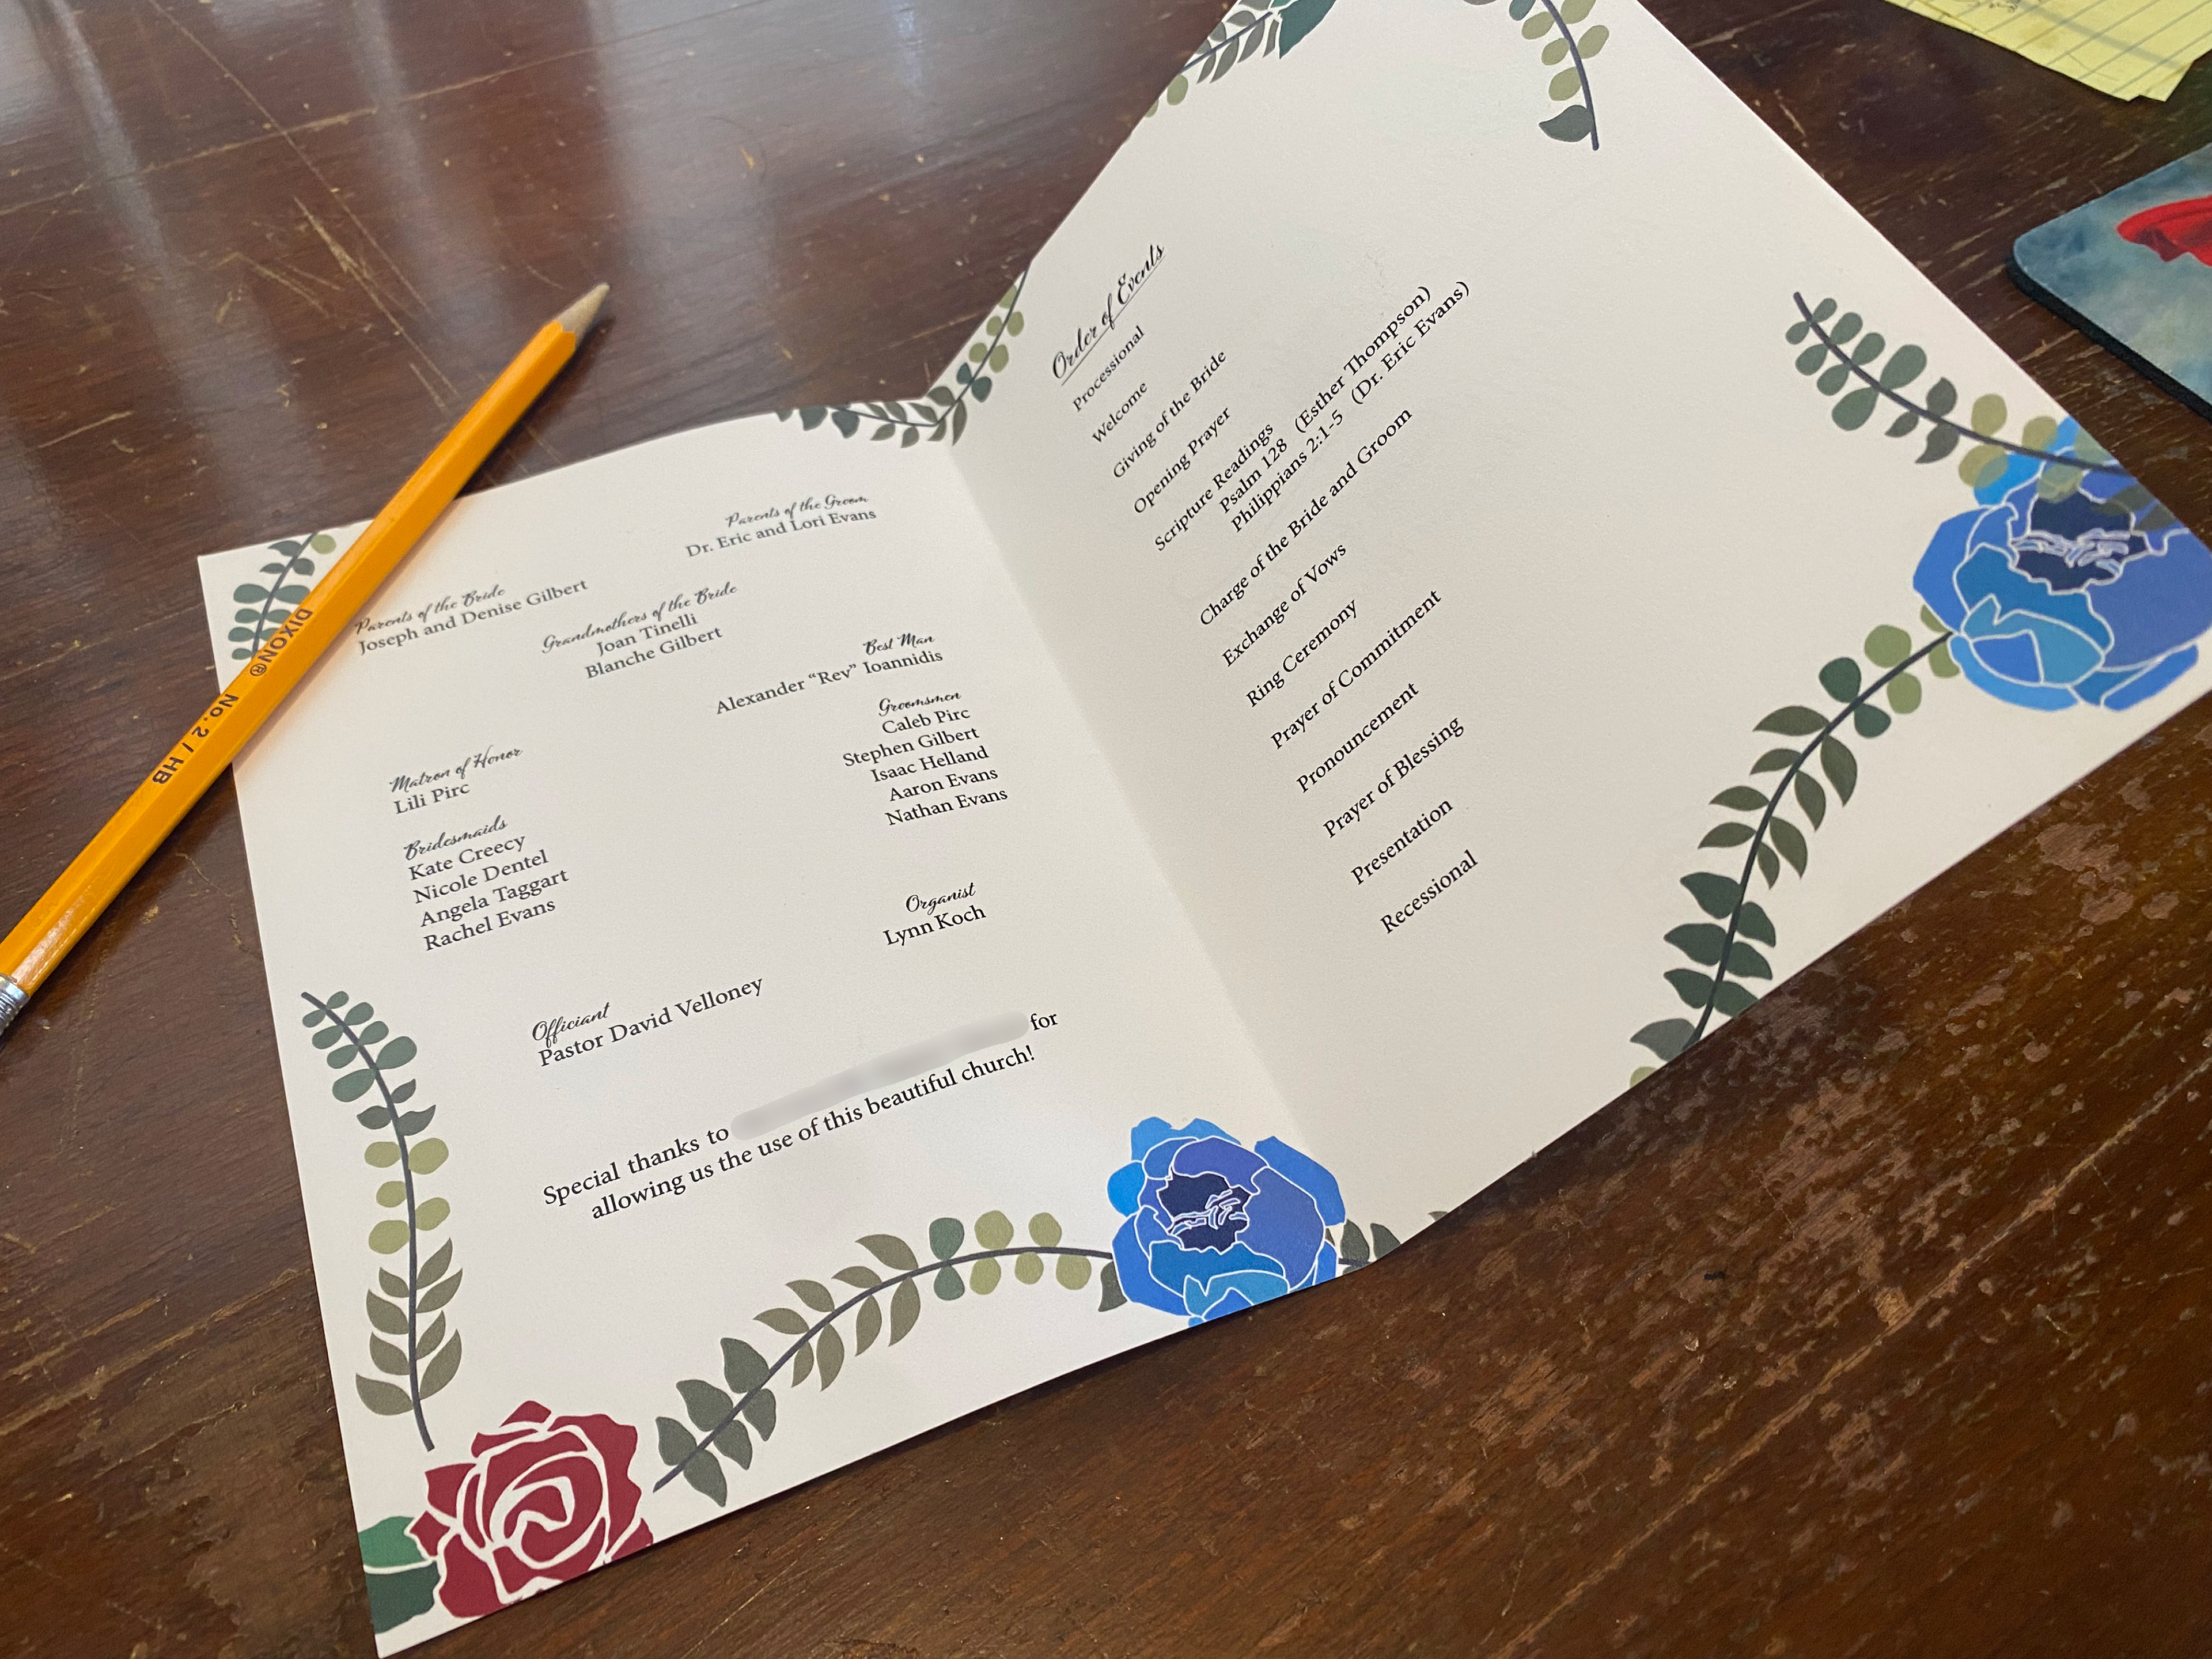 Parents of the Bride
Joseph and Denise Gilbert
Parents of the Groom
Dr. Eric and Lori Evans
Grandmothers of the Bride
Joan Tinelli
Blanche Gilbert
Matron of Honor
Lili Pirc
Bridesmaids
Kate Creecy
Nicole Dentel
Angela Taggart
Rachel Evans
Best Man
Alexander “Rev” Ioannidis
Groomsmen
Caleb Pirc
Stephen Gilbert
Isaac Helland
Aaron Evans
Nathan Evans
Organist
Lynn Koch
Officiant
Pastor David Velloney
Special thanks to for
allowing us the use of this beautiful church!
Order of Events
Processional
Welcome
Giving of the Bride
Opening Prayer
Scripture Readings
Psalm 128 (Esther Thompson)
Philippians 2:1-5 (Dr. Eric Evans)
Charge of the Bride and Groom
Exchange of Vows
Ring Ceremony
Prayer of Commitment
Pronouncement
Prayer of Blessing
Presentation
Recessional
DIXON® No. 2 / HB